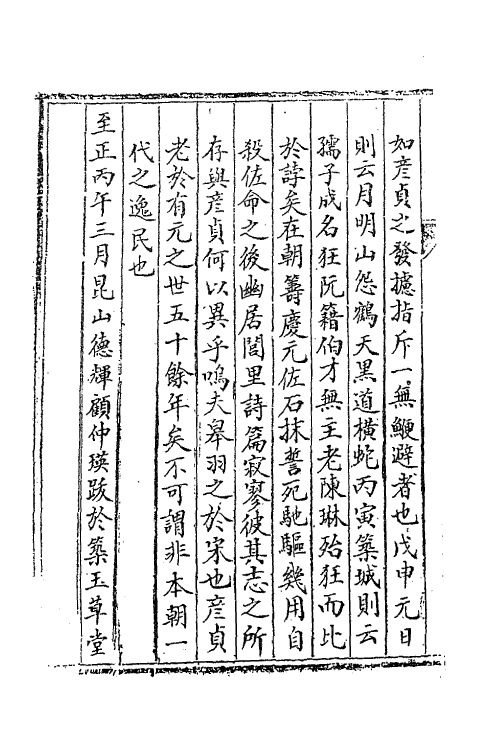 如彥貞之發攄指斥一無鯁避者也戊申元日
則云月明山怨鶴天黑道橫蛇丙寅築城則云
孺子成名狂阮籍伯才無主老陳琳殆狂而比
於誖矣在朝籌慶元佐石抹誓死馳驅幾用自
殺佐命之後幽居閭里詩篇寂寥彼其志之所
存與彥貞何以異乎嗚夫臯羽之於宋也彥貞
老於有元之世五十餘年矣不可謂非本朝一
代之逸民也
至正丙午三月昆山德輝顧仲瑛跋於築玉草堂